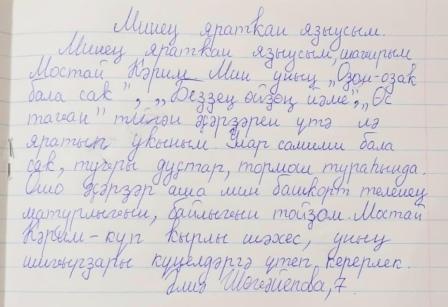 Минең яратҡан яҙыусым.
Минең яратҡан яҙыусым, шағирым
Мостай Кәрим. Мин уның „Оҙон-оҙаҡ
бала саҡ", „Беҙҙең өйҙөң йәме", „Өс
таған" тигән әҫәрҙәрен үтә лә
яратып уҡыным. Улар самими бала
саҡ, туғры дуҫтар, тормош тураһында.
Ошо әҫәрҙәр аша мин башҡорт теленең
матурлығын, байлығын тойҙом. Мостай
Кәрим - күп ҡырлы шәхес, уның
шиғырҙары күңелдәргә үтеп керерлек.
7.